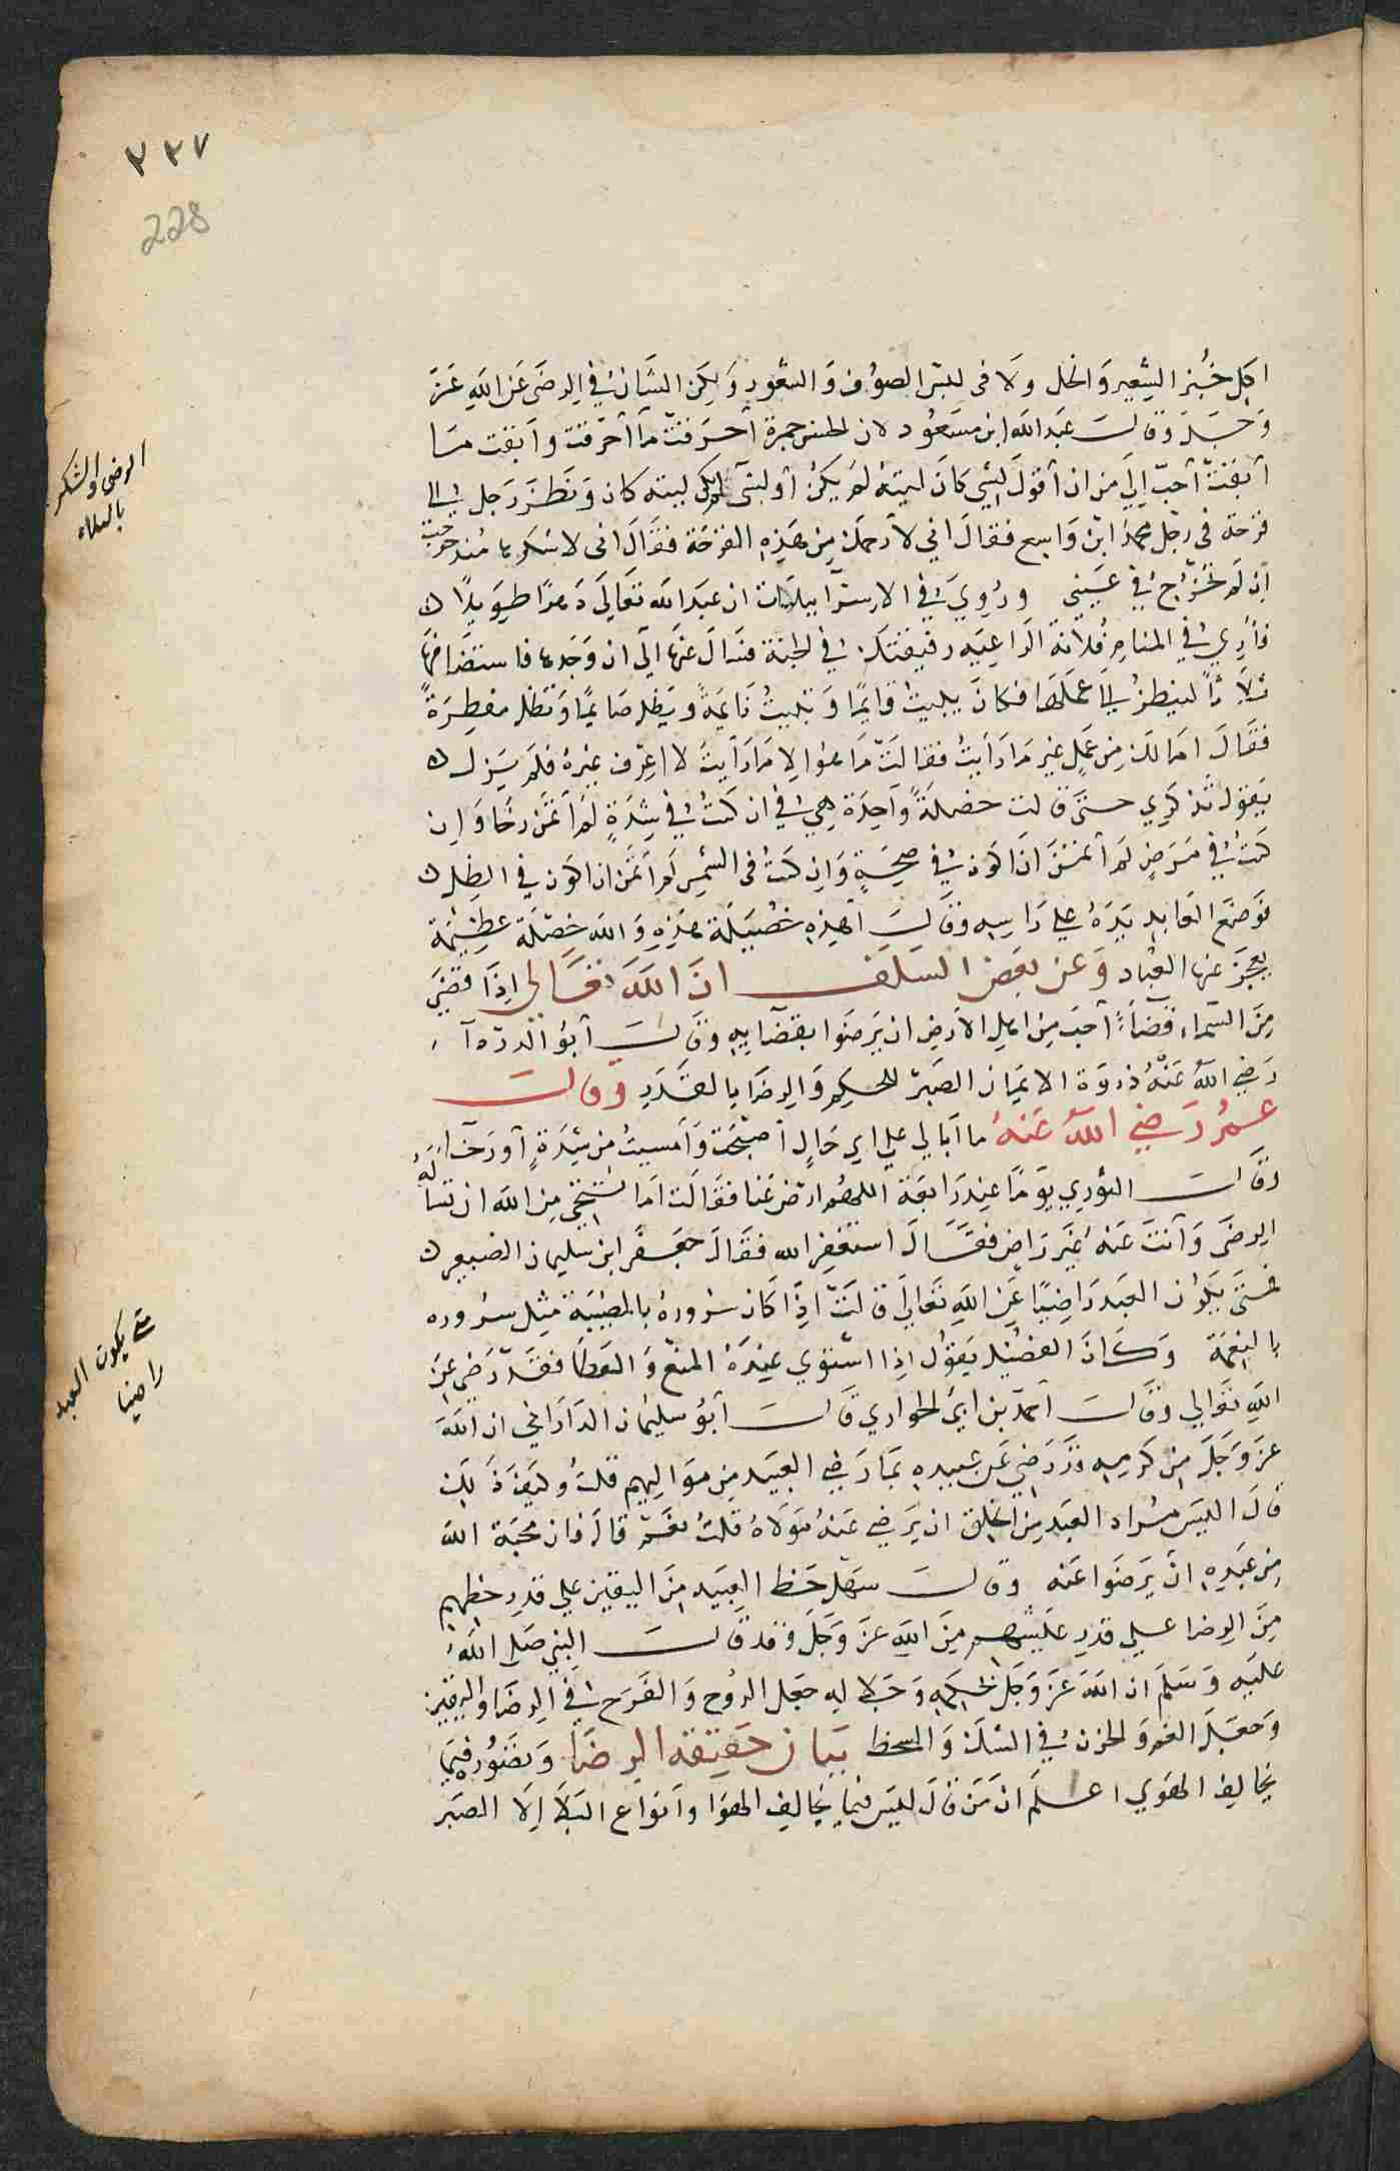 ٢٢٧
228
اكل خُبز الشعير وَالخل ولا فى لبس الصوُف وَالشعور وَلكِن الشان في الرضَى عَن اللهِ عَزَّ
وَجَلَّ وَقَالَ عَبدالله ابن مسعُود لان الحس جمرة أحرقتْ مَا أحرَقت وأبقت مَا
أبقتْ أحبّ إلي من ان أقول لشيٍ كَانَ ليتهُ لَمْ يكُن أو لشى لم يكن ليته كان وَنظرَ رَجل الى
قرحة فى رجل محمد ابن وَاسع فقالَ اني لأرحمك مِن هَذِهِ القرحَة فقَالَ انى لاشكرها مُنذ خرجت
اِذ لَم تخرُج في عَيني وَرُوِيَ في الاسرآييليات ان عَبَد الله تعَالَى دَهرًا طوِيلاً
فأُرِي في المنامِ فُلانة الرَاعِيَه رفيقتك في الجنة فسَألَ عنهَا الَى ان وَجَدهَا فاستضافهَا
ثلاَثاً لينظرُ الَى عملهَا فكانَ يبيتُ قايمًا وَتبيتُ نَايمَةً وَيَظل صَايمًا وَتَظل مفطِرَةً
فقَالَ امَا لك مِن عَمَلٍ غير مَا رَأيتُ فقالَتْ مَا هوَ الا مَا رَأيتَ لا اعرف غيرهُ فلَم يَزل
يَقول تذكرِي حتىَ قَالت خصلَةً وَاحِدَة هِيَ في ان كنتُ في شِدَةٍ لَمْ أتمَنَ رخَا وَان
كنتُ في مَرَضٍ لم أتمنَّ ان اكون في صِحَةٍ وَان كنتُ فى الشمس لَم أتمَن ان اكون في الظل
فَوضعَ العَابد يَدَهُ علي رَاسِهِ وَقَالَ أهذِه خُصَيلَة هَذِهِ وَالله خَصْلَة عَظِيمَة
يعجَز عنها العُبّاد وَعن بعَض السَلف انّ الله تعَالى إذَا قضىَ
مِنَ السّماء قضآءً أحبَ مِن اهلِ الأرضِ ان يَرضَوا بقضآيِهِ وَقالَ أبُو الدردآء
رَضي اللهُ عَنهُ ذروَة الايمَان الصَبرُ للحكِم وَالرضَا بالقَدَرِ وَقَالَ
عمرُ رَضي اللهُ عَنهُ ما أبَالي علي اي حَالٍ أصْبحَت وَأمسيتُ مِن شِدَةٍ أو رَخآء
وَقَالَ الثوري يَومًا عِندَ رَابعَة اللهم ارضَ عَنا فقَالَت أمَا تستحي مِن الله ان تسألهُ
الرضَى وَأنتَ عَنهُ غَير رَاضٍ فقَالَ استغفر الله فقَالَ جَعفر ابن سليمان الضبعي
فمتىَ يَكون العَبد رَاضِيًا عَن اللهِ تعَالى قالَتْ اِذَا كَان سُرُورهُ بالمصِيبَة مِثل سروره
بالنعمَة وَكَانَ الفضيل يَقوُل اِذا استوَي عِندَهُ المنع وَالعَطَا فقَدْ رَضي عَن
اللهِ تعَالي وَقَالَ أحمَد بن ابيَ الحوَاري قَالَ أبُو سليمَان الدَارَاني ان اللهَ
عَزَ وَجَلَ مِن كرَمِه قد رَضِيَ مِن عبيدِه بمَا رَضِي العَبيد مِن موَاليهم قلتُ وَكيَف ذَلِك
قالَ اليسَ مُراد العَبد مِن الخلق ان يَرضي عَنهُ مَولاهُ قلتُ نعَم قالَ فان محبَة الله
مِن عَبيدِهِ انْ يَرضَوا عَنه وَقالَ سَهل حَظ العَبيد مِنَ اليقين علي قدر حَظهم
مِنَ الرِضا وحظهم من الرضا على قدر عيشهم مِنَ اللهِ عَزَ وَجَلَّ وَقد قَالَ النبي صَلى اللهُ
عليَهِ وَسَلم ان اللهَ عَزَ وَجَل بحكمهِ وَجَلاله جعَل الرَوْح وَالفَرَح في الرضَا وَاليقين
وَجَعَلَ الغم وَالحزن في الشك وَالسخط بَيَان حَقيقة الرضَا وَتصَوّره فيمَا
يخالف الهوَي اعلَم انَّ مَن قَالَ ليسَ فيما يخالِف الهوَا وَأنواع البَلآ إلاَ الصبر
الرضى والشكر
بالبلاء
متى يكون العبد
راضيا